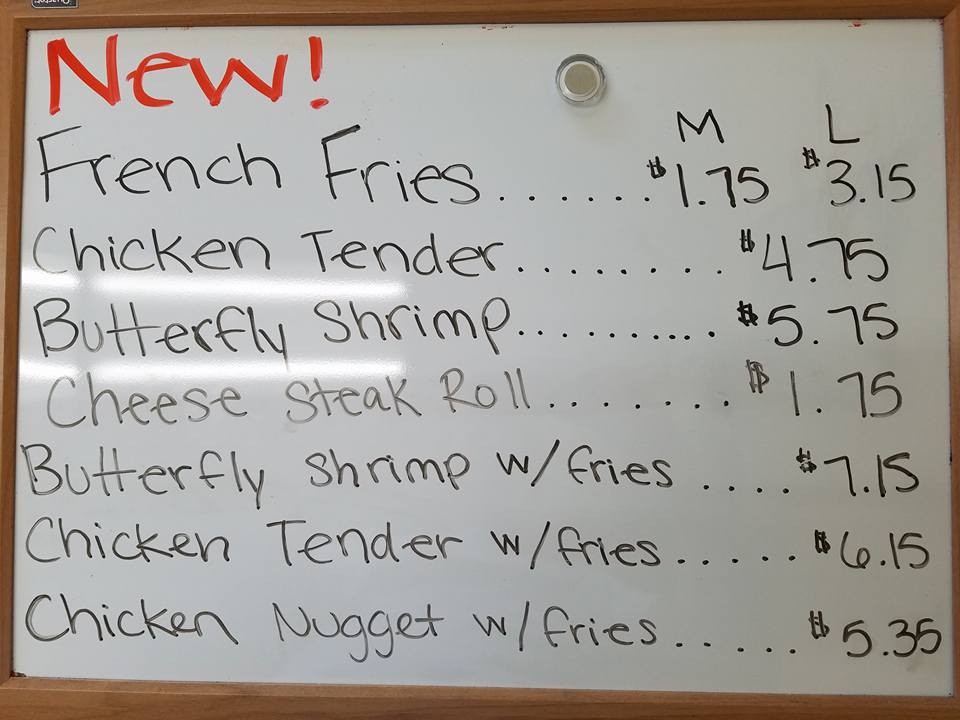 New!
M L
French Fries....... $1.75 $3.15
Chicken Tender......... $4.75
Butterfly Shrimp.......... $5.75
Cheese Steak Roll........ $1.75
Butterfly Shrimp w/fries .... $7.15
Chicken Tender w/fries...... $6.15
Chicken Nugget w/fries..... $5.35